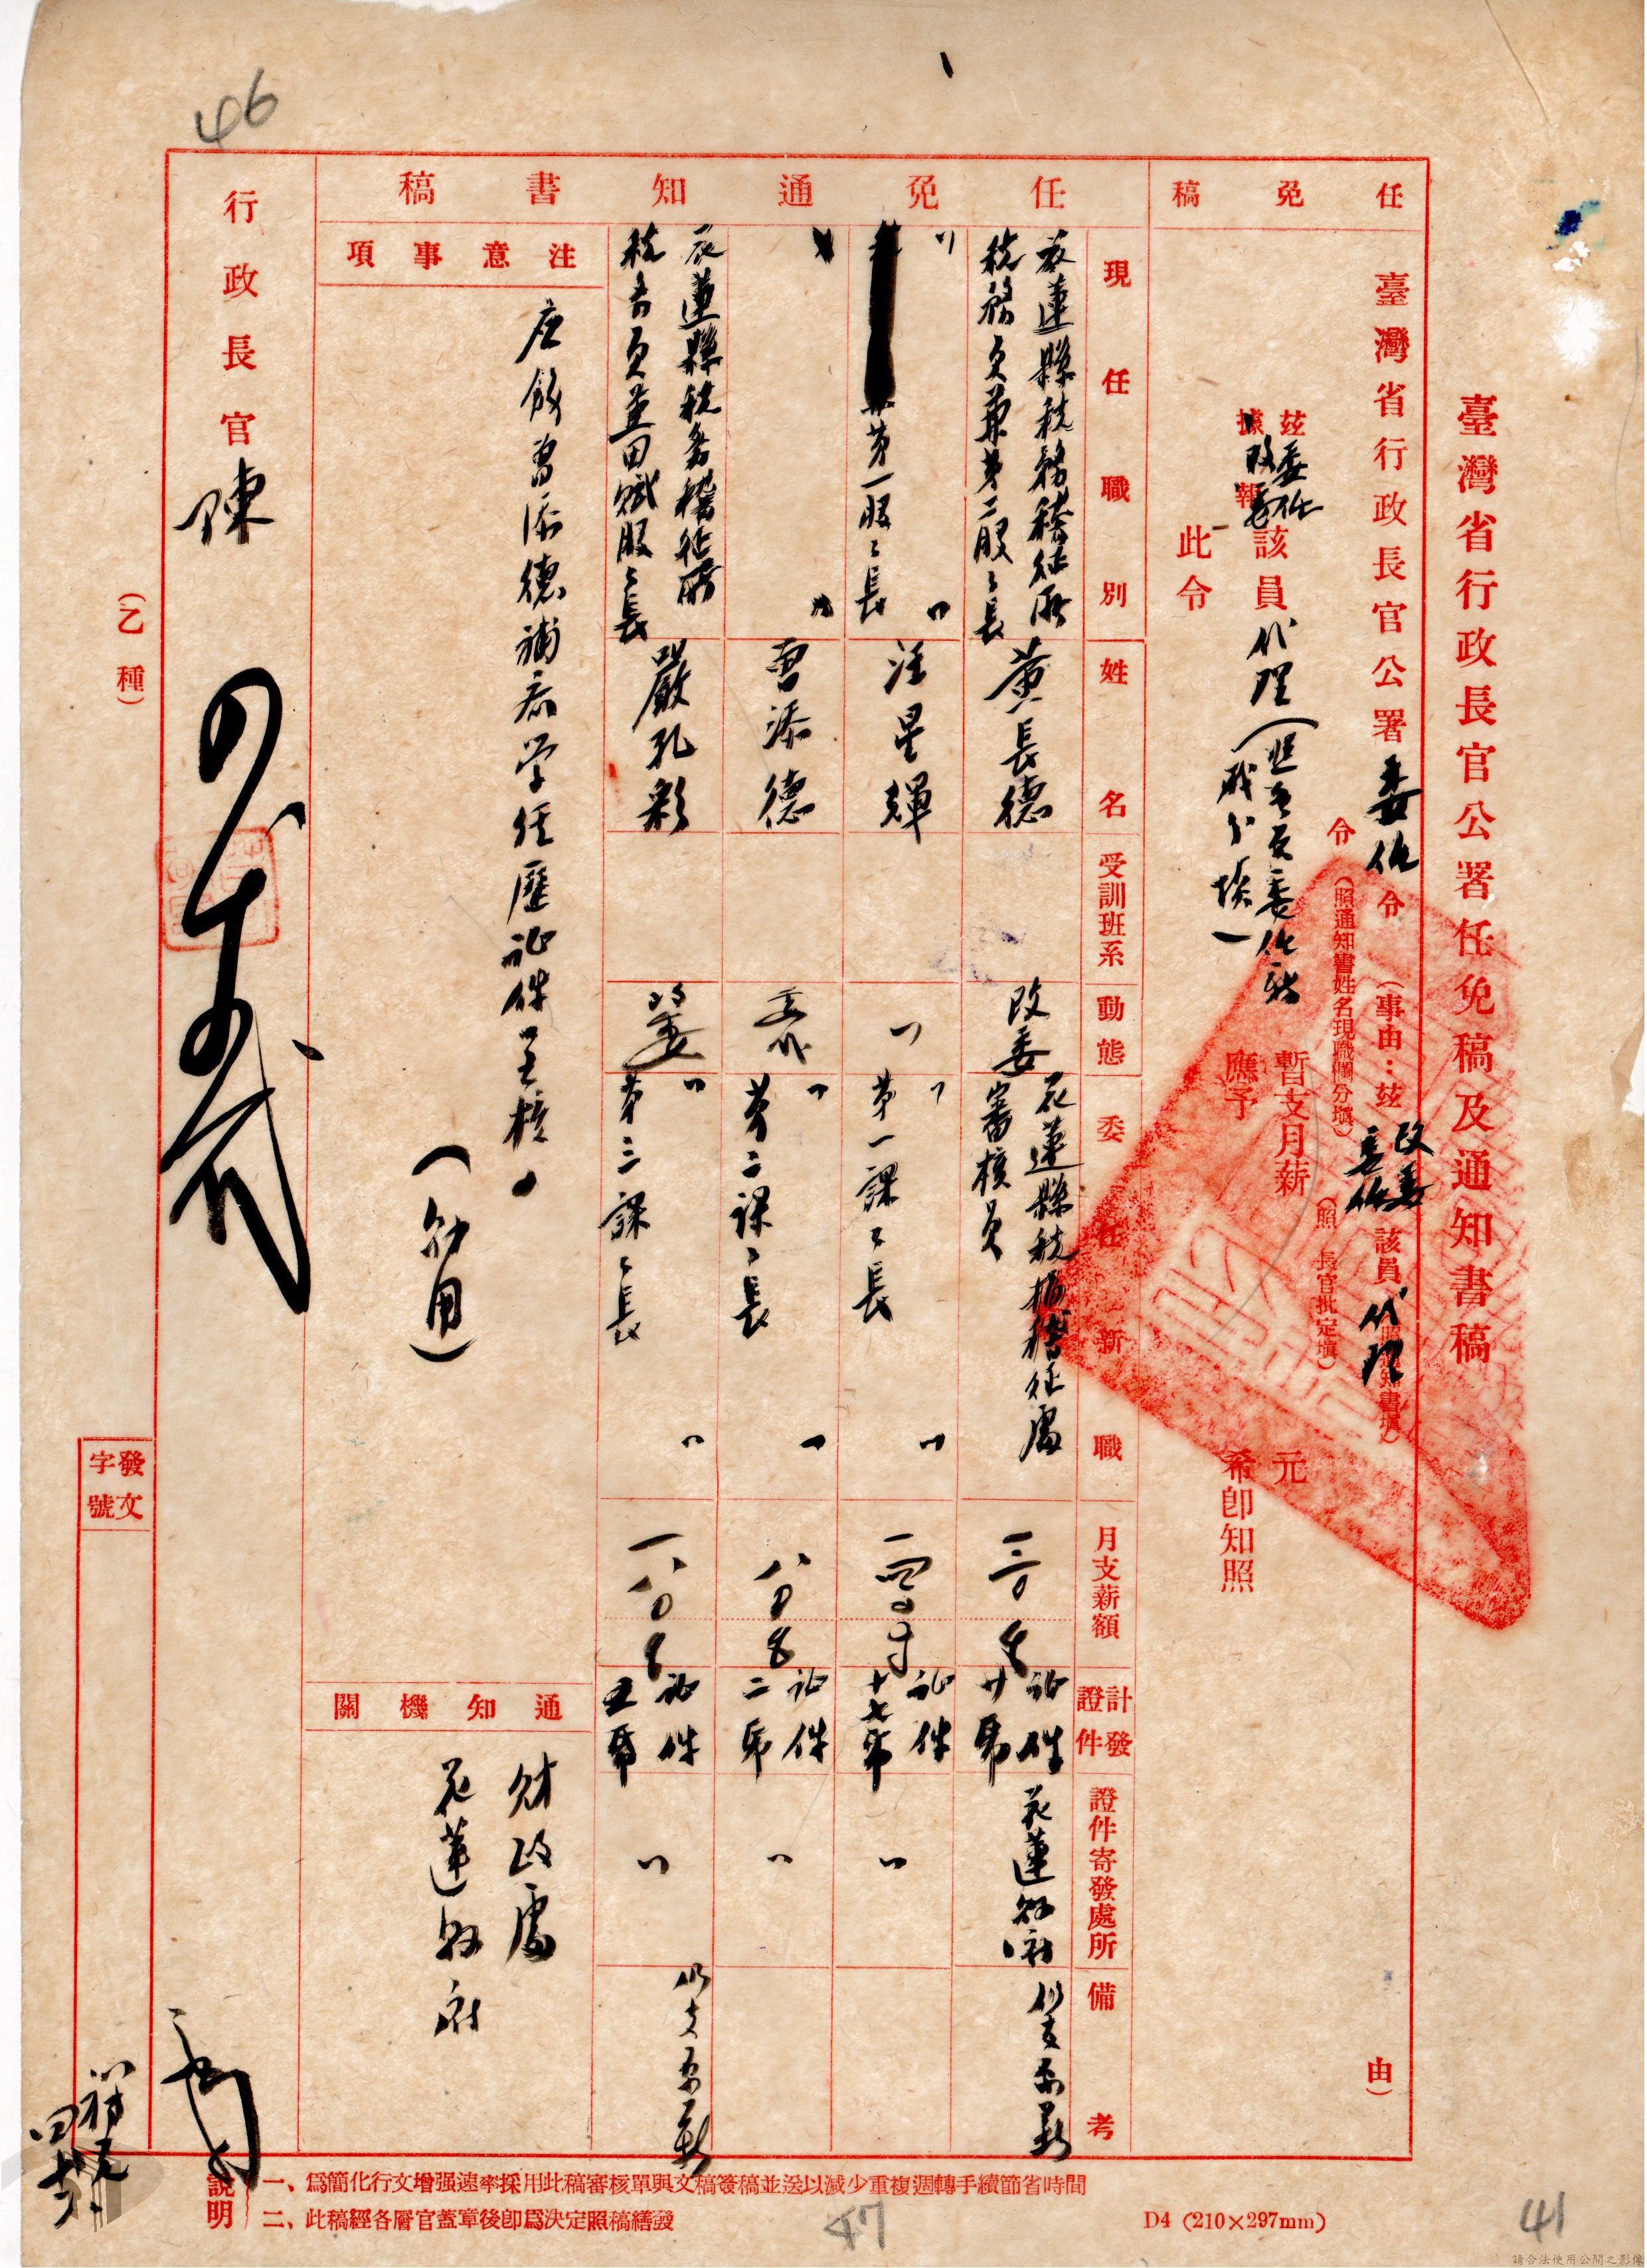 臺灣省行政長官公署任免稿及通知書稿
任免稿
臺灣省行政長官公署委任令(事由:茲改委委任該員代理
由)
令(照通知書姓名現職欄分塡)(照 長官批定塡)
茲委任
據報改委
該員代理
暫支月薪 元
應予 希卽知照
此令
任免通知書稿
現任職別
姓名
受訓班系
動態
委任新職
月支薪額
計發證件
證件寄發處所
備考
花蓮縣稅務稽征所
稅務員兼第二股々長
黃長德
改委
花蓮縣稅捐稽征處
審核員
證件
廿號
花蓮縣府
仍支原薪
〃
第一股々長
〃
汪星輝
〃
〃
第一課々長
〃
證件
十七號
〃
曾添德
委代
〃
第二課々長
〃
八〇
證件
二號
〃
花蓮縣稅務稽征所
稅務員並田賦股々長
嚴孔彩
改委
〃
第三課々長
〃
一八〇
證件
五號
〃
仍支原薪
注意事項
應飭曾添德補齊學經歷證件呈核。
通知機關
財政處
花蓮縣府
行政長官 陳
(乙種)
發文
字號
說明
一、爲簡化行文增强速率採用此稿審核單與文稿簽稿並送以減少重複週轉手續節省時間
二、此稿經各層官蓋章後卽爲決定照稿繕發
D4 (210×297mm)
46
47
41
請合法使用公開之影像